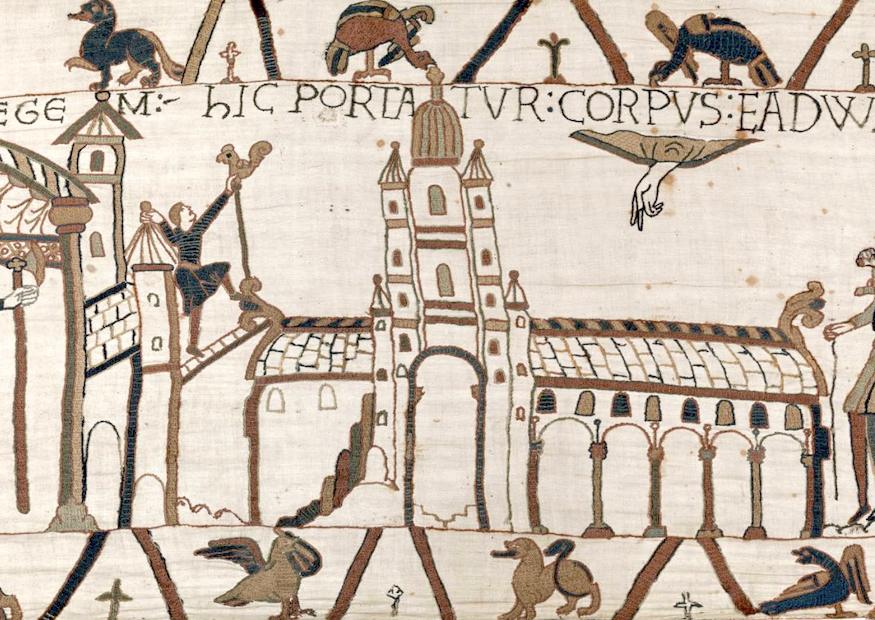 EGE M:- hIC PORTA TVR:CORPVS:EADW